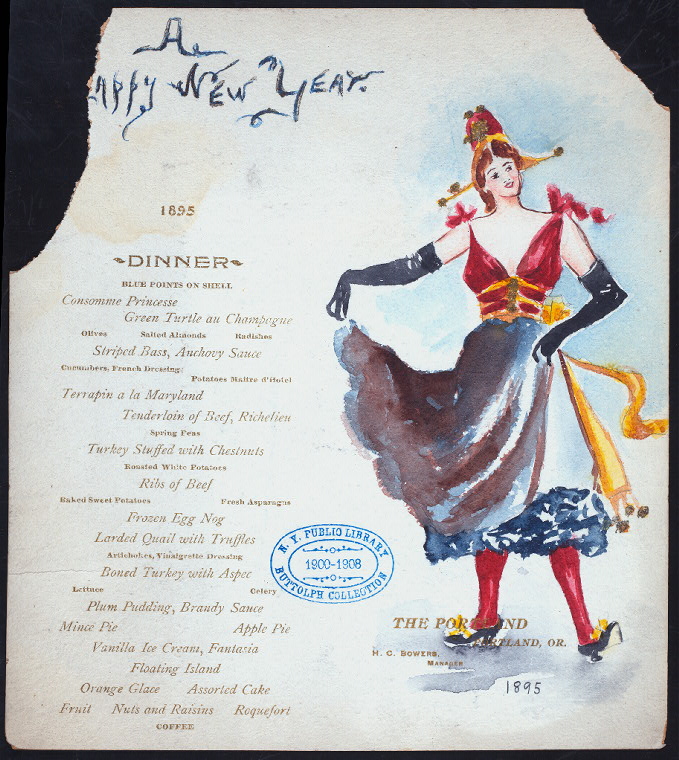 A
appy New Year.
1895
DINNER
BLUE POINTS ON SHELL
Consomme Princesse
Green Turtle au Champagne
Olives Salted Almonds Radishes
Striped Bass, Anchovy Sauce
Cucumbers, French Dressing
Potatoes Maitre d'Hotel
Terrapin a la Maryland
Tenderloin of Beef, Richelieu
Spring Peas
Turkey Stuffed with Chestnuts
Roasted White Potatoes
Ribs of Beef
Baked Sweet Potatoes Fresh Asparagus
Frozen Egg Nog
Larded Quail with Truffles
Artichokes, Vinaigrette Dressing
Boned Turkey with Aspec
Lettuce Celery
Plum Pudding, Brandy Sauce
Mince Pie Apple Pie
Vanilla Ice Cream, Fantasia
Floating Island
Orange Glace Assorted Cake
Fruit Nuts and Raisins Roquefort
COFFEE
N. Y. PUBLIC LIBRARY
1900-1908
BUTTOLPH COLLECTION
THE PORTLAND
PORTLAND, OR.
H. C. BOWERS,
MANAGER
1895